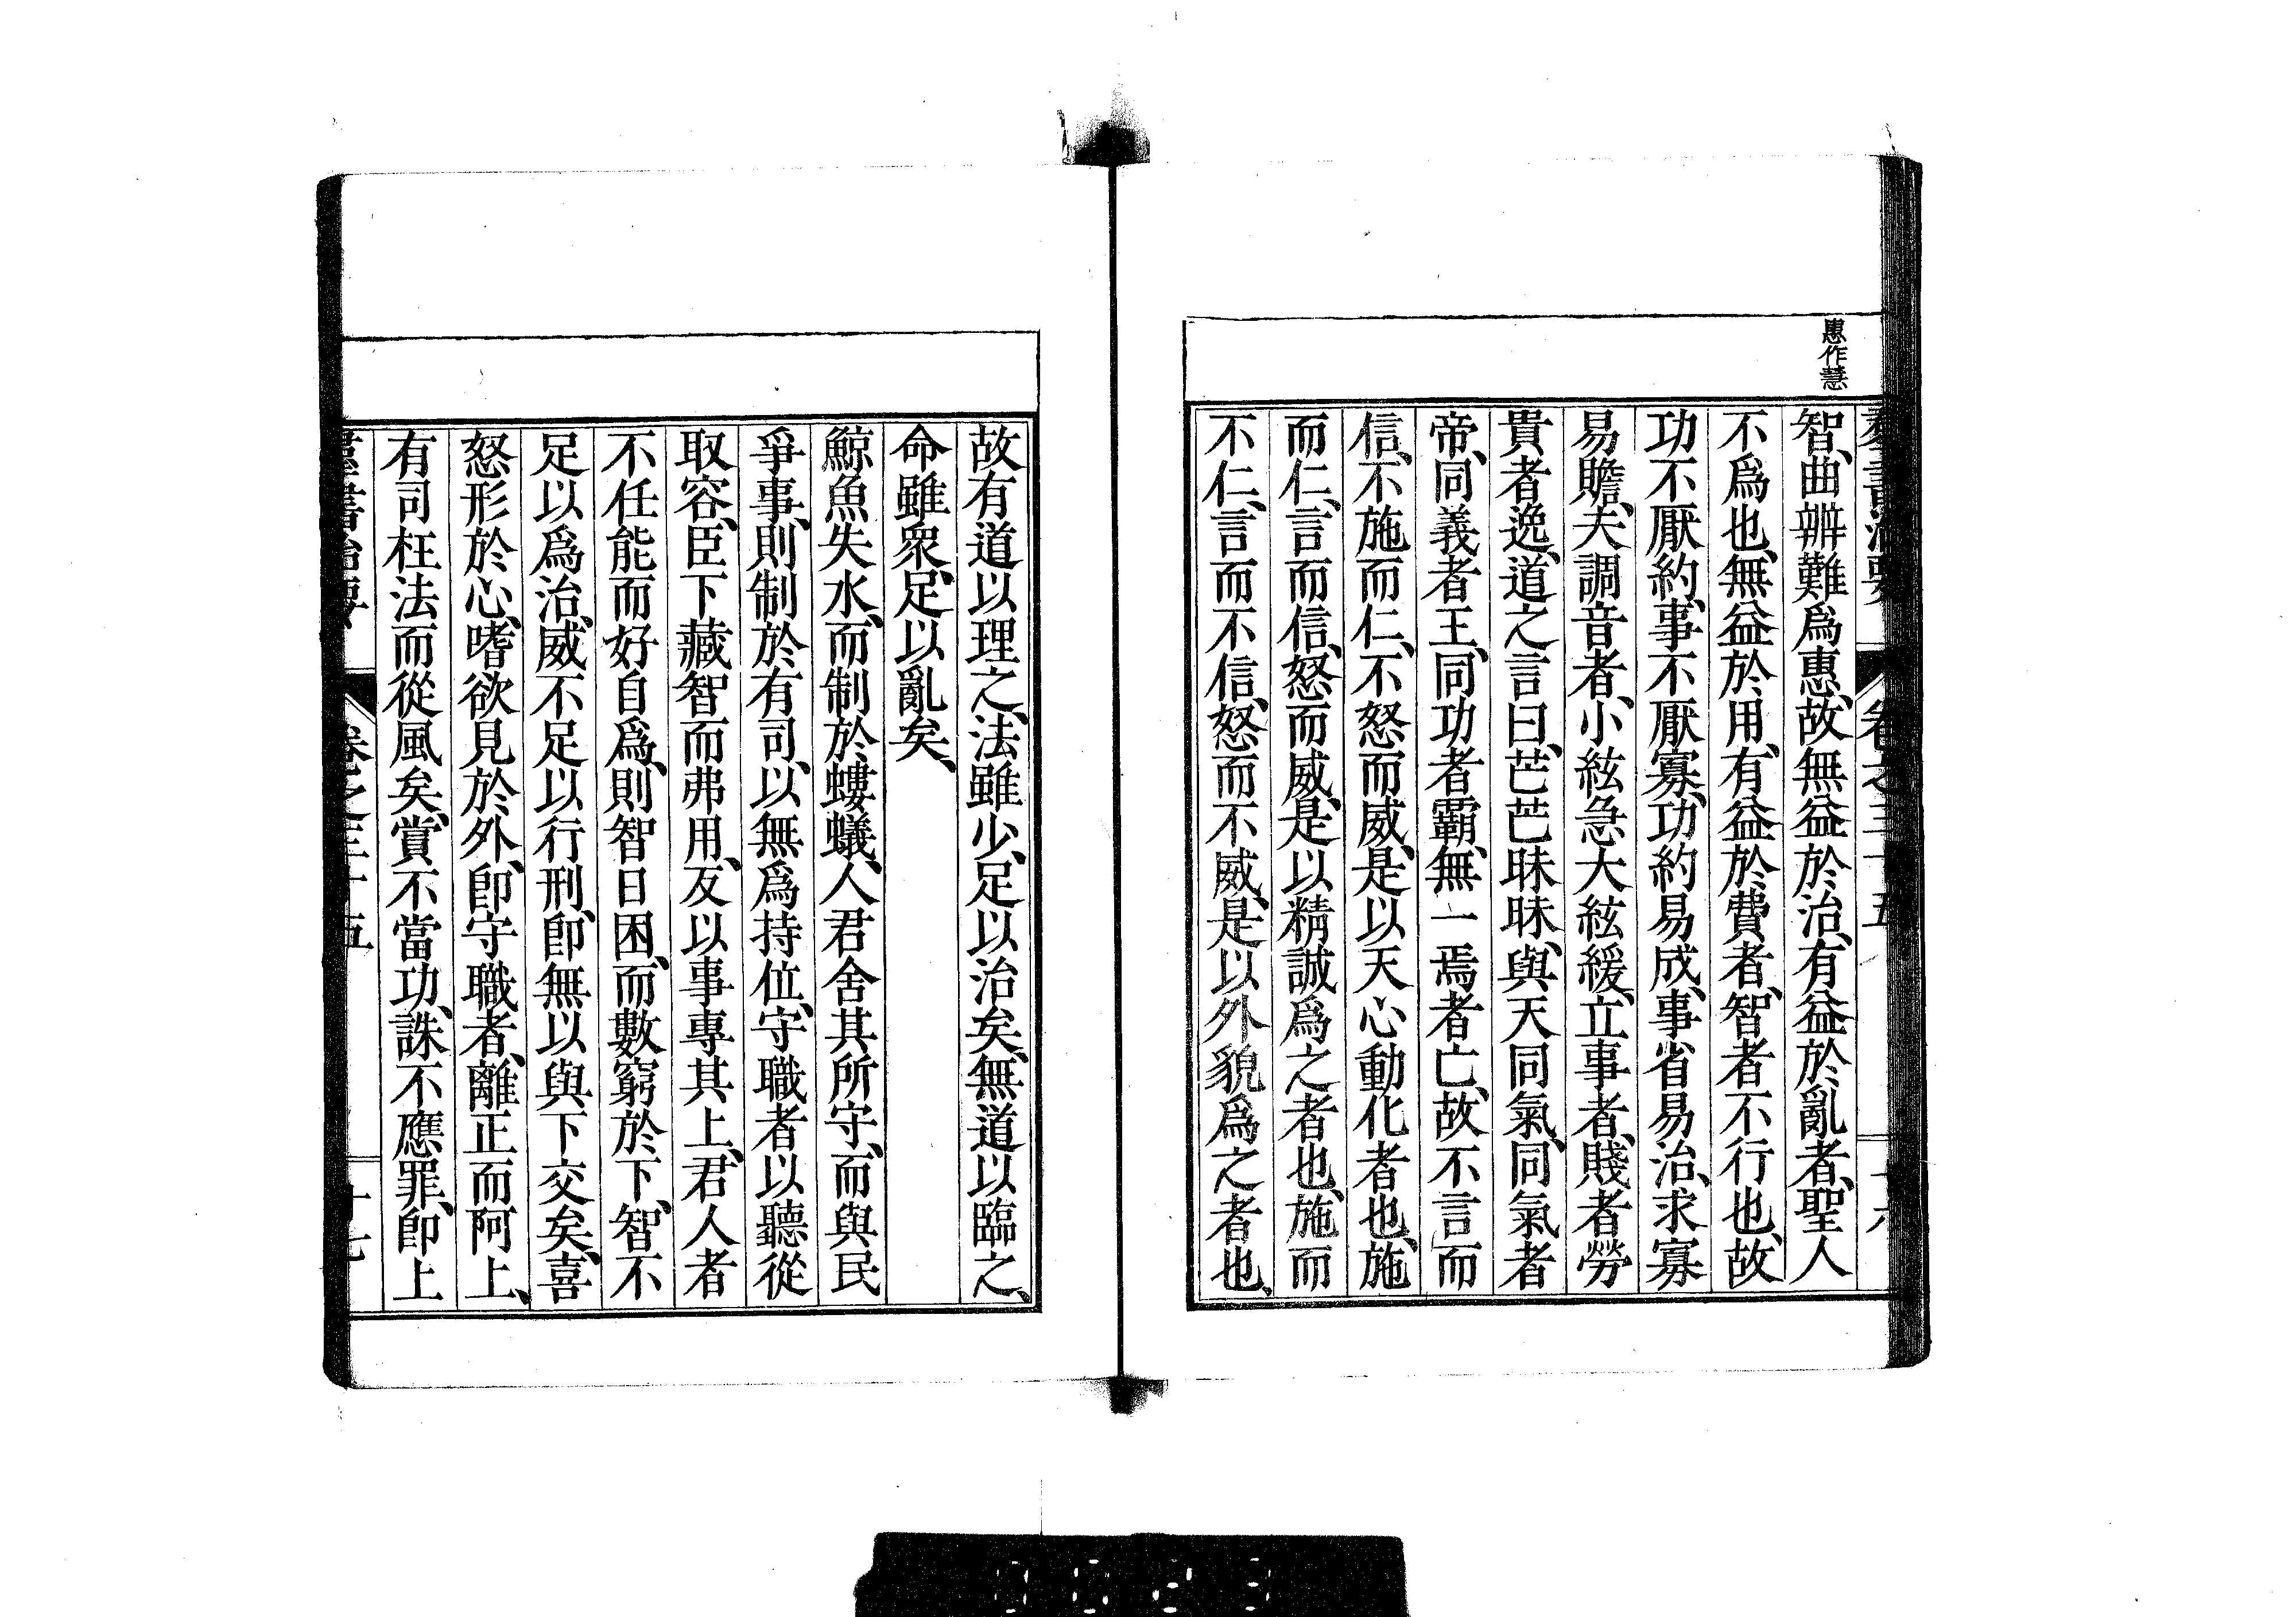 惠作慧
羣書治要 卷之三十五 十六
智、曲辨難爲惠、故無益於治、有益於亂者、聖人
不爲也、無益於用、有益於費者、智者不行也、故
功不厭約、事不厭寡、功約易成、事省易治、求寡
易贍、夫調音者、小絃急大絃緩、立事者、賤者勞
貴者逸、道之言曰、芒芒昧昧、與天同氣、同氣者
帝、同義者王、同功者霸、無一焉者亡、故不言而
信、不施而仁、不怒而威、是以天心動化者也、施
而仁、言而信、怒而威、是以精誠爲之者也、施而
不仁、言而不信、怒而不威、是以外貌爲之者也、
故有道以理之、法雖少、足以治矣、無道以臨之、
命雖衆、足以亂矣、
鯨魚失水、而制於螻蟻、人君舍其所守、而與民
爭事、則制於有司、以無爲持位、守職者以聽從
取容、臣下藏智而弗用、反以事專其上、君人者
不任能而好自爲、則智日困、而數窮於下、智不
足以爲治、威不足以行刑、卽無以與下交矣、喜
怒形於心、嗜欲見於外、卽守職者、離正而阿上、
有司枉法而從風矣、賞不當功、誅不應罪、卽上
羣書治要 卷之三十五 十七